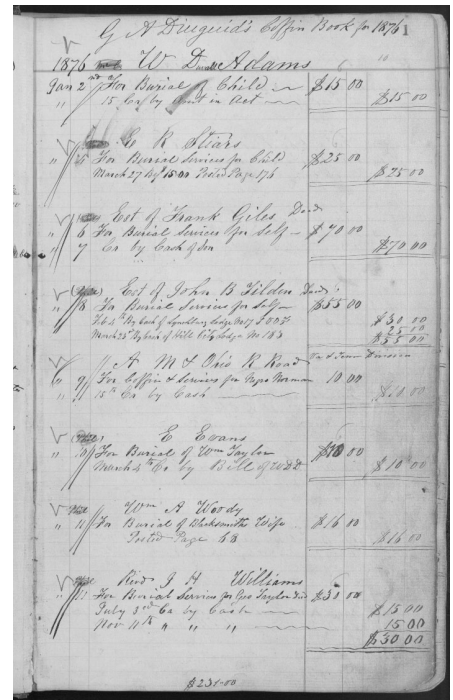 G A Diuguid's Coffin Book for 1876 1
1876 W D Adams
Jan 2nd For Burial of Child $15 00
" 15 Cr by Amt in Act $15 00
C R Stiars
" 5 For Burial Services for Child $25 00
March 27 By 15.00 Posted Page 176 $25 00
Est of Frank Giles Decd
" 6 For Burial Services for Self $70 00
" 7 Cr by Cash of Son $70 00
Est of John B Tilden Decd
" 8 For Burial Services for Self $55 00
Feb 4th By Cash of Lynchburg Lodge No 17 I O O F $30 00
March 25th By of Hill City Lodge No 183 25 00
$55 00
A M & Ohio R Road Va & Tenn Division
" 9 For Coffin & Services for Negro Norman 10 00
" 15th Cr by Cash $10.00
E Evans
" 10 For Burial of Wm Taylor $10 00
March 4th Cr by Bill of WDD $10 00
Wm A Woody
" 11 For Burial of Blacksmiths Wife $16 00
Posted Page 68 $16 00
Revd J H Williams
" 11 For Burial Services for Geo Taylor Decd $30 00
July 3rd Cr by Cash $15 00
Nov 11th " " " 15 00
$30 00
$231-00